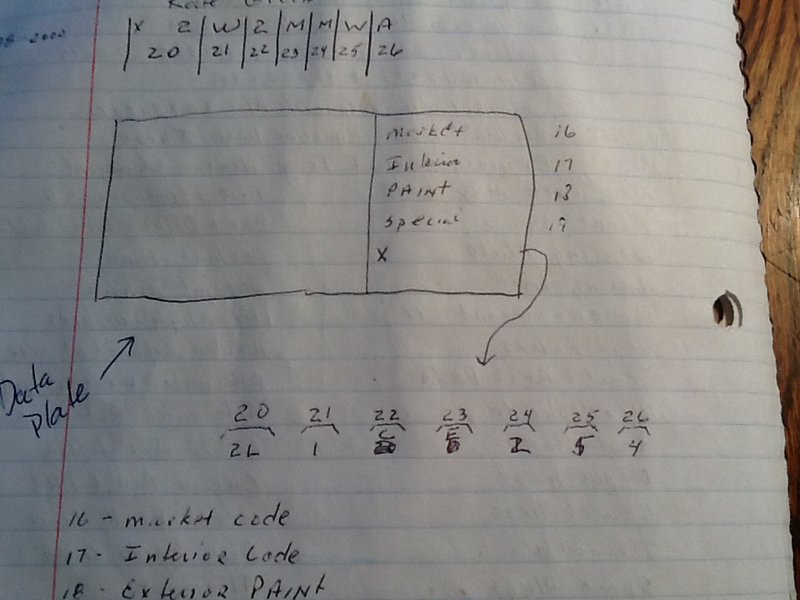 X 2 | W | 2 | M | M | W | A
20 | 21 | 22 | 23 | 24 | 25 | 26
market 16
Interior 17
PAINT 18
Special 19
X
Data
Plate
20 21 22 23 24 25 26
2L 1 C E 2 5 4
16 - market code
17 - Interior Code
18 - Exterior PAINT